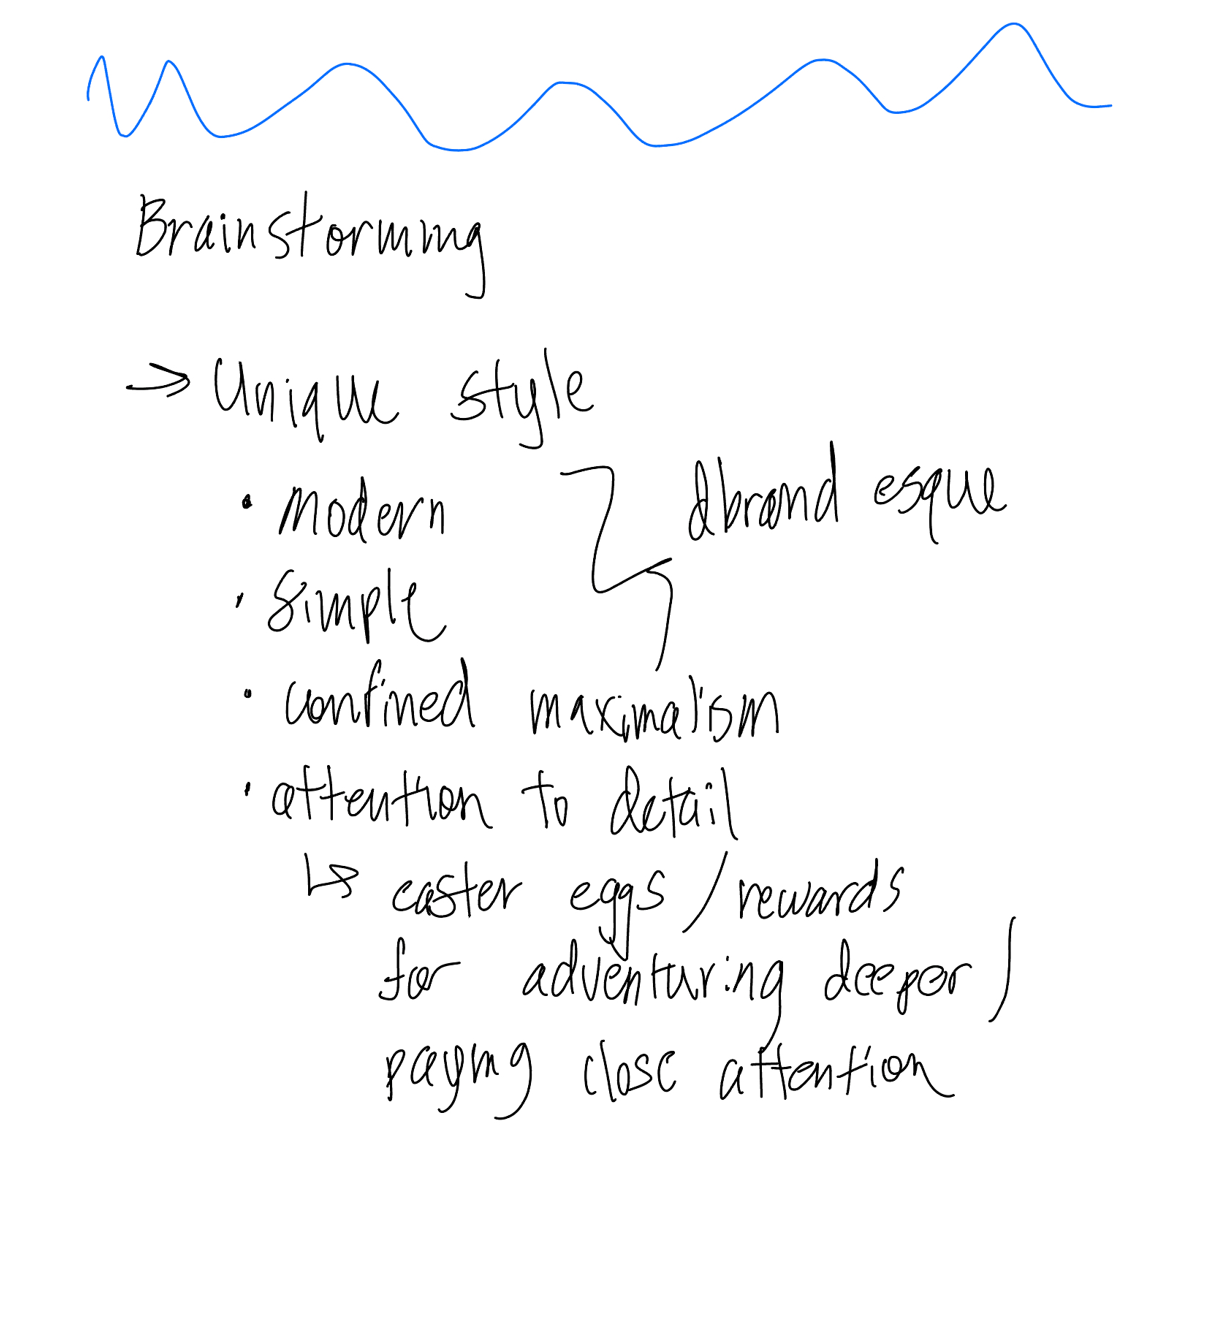 Brainstorming
→ Unique style
• modern
• simple
dbrand esque
• confined maximalism
• attention to detail
↳ easter eggs / rewards
for adventuring deeper /
paying close attention